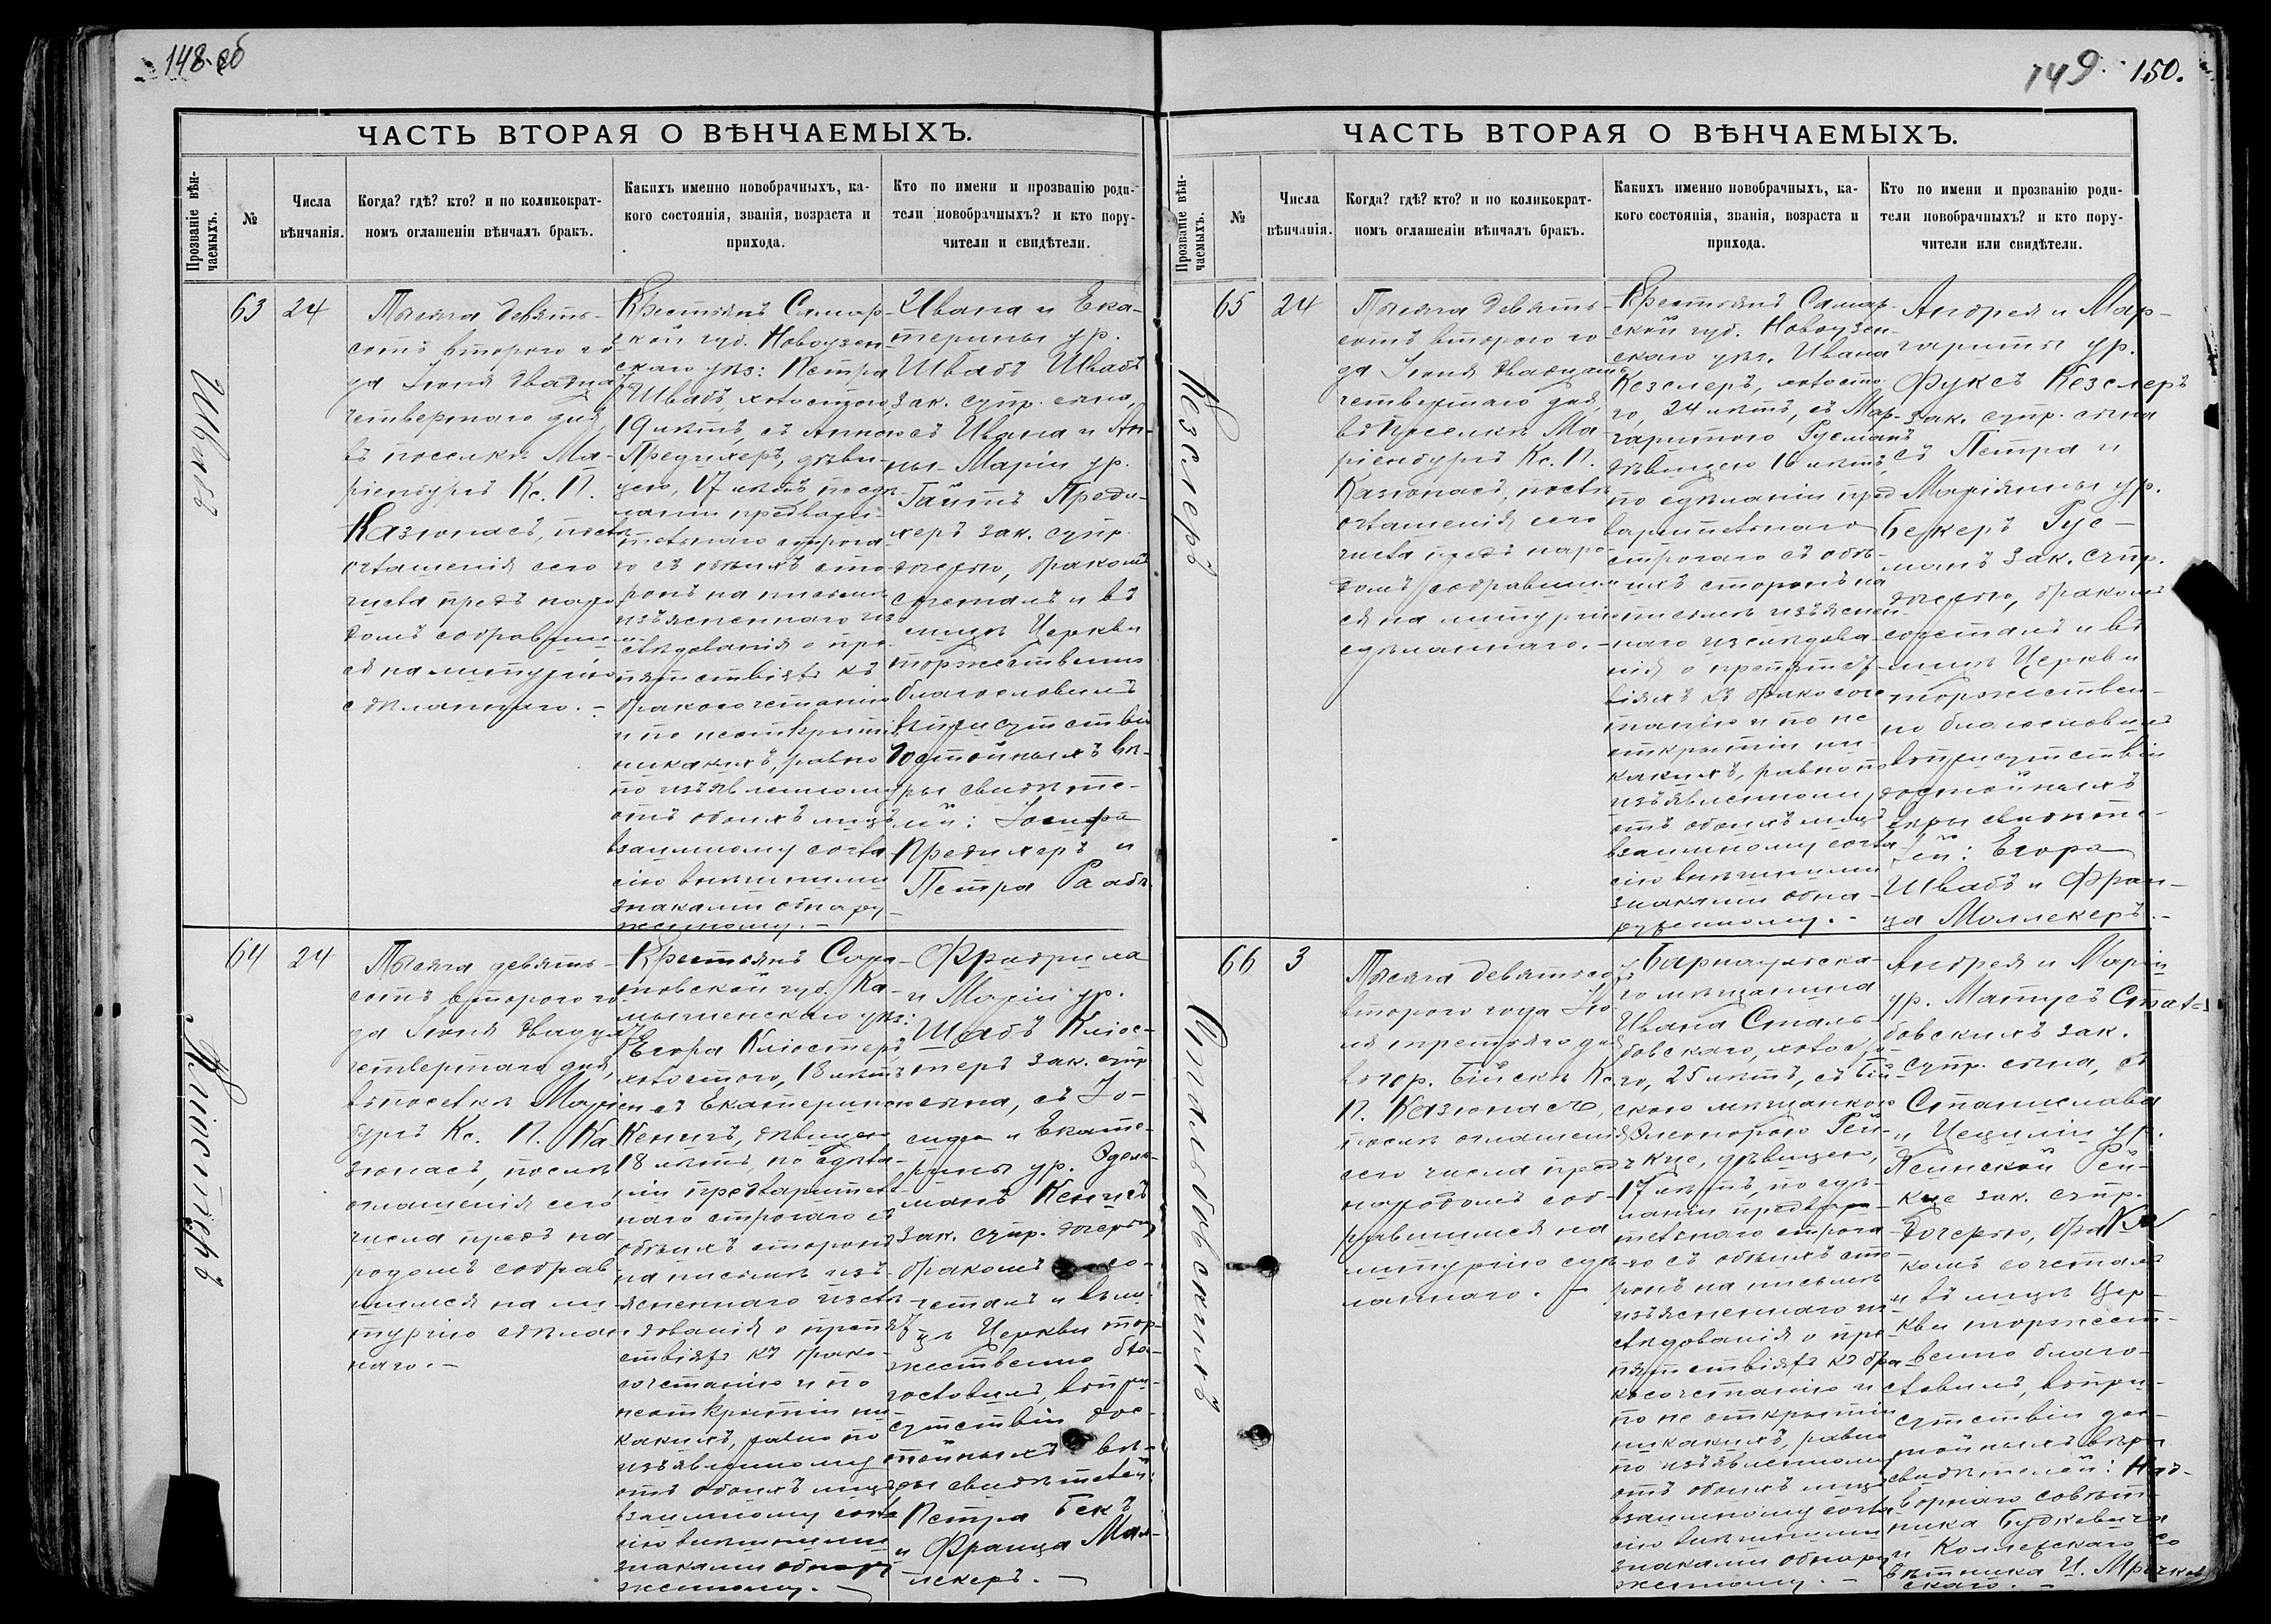 148 об
ЧАСТЬ ВТОРАЯ О ВѢНЧАЕМЫХЪ.
Прозваніе вѣн-
чаемыхъ.
№
Числа
вѣнчанія.
Когда? гдѣ? кто? и по коликократ-
номъ оглашеніи вѣнчалъ бракъ.
Какихъ именно новобрачныхъ, ка-
кого состоянія, званія, возраста и
прихода.
Кто по имени и прозванію роди-
тели новобрачныхъ? и кто пору-
чители и свидѣтели.
Швабъ
63
24
Тысяча девять-
сотъ второго го
да Іюня двадца
четвертаго дня,
въ поселкѣ Ма-
ріенбургъ Кс. П.
Казюнасъ, послѣ
оглашенія сего
числа предъ наро
домъ собравшим
ся на литургію
сдѣланнаго. -
Крестьянъ Самар-
ской губ. Новоузен
скаго уѣз: Петра
Швабъ, холостого
19 лѣтъ, съ Анною
Предигеръ, дѣви-
цею, 17 лѣтъ, по сдѣ
ланіи предвари-
тельнаго строга-
го съ обѣихъ сто-
ронъ на письмѣ
изъясненнаго из-
слѣдованія о пре
пятствіяхъ къ
бракосочетанію
и по неоткрытіи
никакихъ, равно
по изъявленному
отъ обоихъ лицъ
взаимному согла
сію внѣшними
знаками обнару-
женному. -
Ивана и Ека-
терины ур.
Швабъ Швабъ
зак. супр. сына,
съ Ивана и Ан-
ны-Маріи ур.
Гаттъ Преди-
херъ зак. супр.
дочерью, бракомъ
сочеталъ и въ
лицѣ Церкви
торжественно
благословилъ
въ присутствіи
достойныхъ вѣ-
ры свидѣте-
лей: Іосифа
Предигеръ и
Петра Раабъ.
Клюстеръ
64
24
Тысяча девять-
сотъ второго го
да Іюня двадца
четвертаго дня,
въ поселкѣ Маріен
бургъ Кс. П. Ка-
зюнасъ, послѣ
оглашенія сего
числа предъ на
родомъ собрав
шимся на ли
тургію сдѣлан
наго. -
Крестьянъ Сара-
товской губ. Ка-
мышенскаго уѣз:
Егора Клюстеръ,
холостого, 18 лѣтъ
съ Екатериною
Кенигъ, дѣвицею
18 лѣтъ, по сдѣла-
ніи предварител
наго строгаго съ
обѣихъ сторонъ
на письмѣ изъ-
ясненнаго изслѣ
дованія о препят
ствіяхъ къ брако-
сочетанію и по
неоткрытіи ни-
какихъ, равно по
изъявленному
отъ обоихъ лицъ
взаимному согла
сію внѣшними
знаками обнару
женному. -
Фридриха
и Маріи ур.
Швабъ Клюс-
теръ зак. супр
сына, съ Іо-
сифа и Екате-
рины ур. Эдель-
манъ Кенигъ
зак. супр. дочерью
бракомъ со-
четалъ и въ ли-
цѣ Церкви тор-
жественно бла-
гословилъ, въ при-
сутствіи дос-
тойныхъ вѣ-
ры свидѣтелей:
Петра Бекъ
и Франца Мол-
лекеръ. -
149. 150.
ЧАСТЬ ВТОРАЯ О ВѢНЧАЕМЫХЪ.
Прозваніе вѣн-
чаемыхъ.
№
Числа
вѣнчанія.
Когда? гдѣ? кто? и по коликократ-
номъ оглашеніи вѣнчалъ бракъ.
Какихъ именно новобрачныхъ, ка-
кого состоянія, званія, возраста и
прихода.
Кто по имени и прозванію роди-
тели новобрачныхъ? и кто пору-
чители или свидѣтели.
Кезслеръ
65
24
Тысяча девять-
сотъ второго го
да Іюня двадцать
четвертаго дня,
въ поселкѣ Ма-
ріенбургъ Кс. П.
Казюнасъ, послѣ
оглашенія сего
числа предъ наро-
домъ собравшим
ся на литургію
сдѣланнаго. -
Крестьянъ Самар-
ской губ. Новоузен-
скаго уѣз. Ивана
Кезслеръ, холосто-
го, 24 лѣтъ, съ Мар-
гаритою Гусманъ
дѣвицею 16 лѣтъ,
по сдѣланіи пред
варительнаго
строгаго съ обѣ-
ихъ сторонъ на
письмѣ изъяснен-
наго изслѣдова-
нія о препятст-
віяхъ къ бракосоче
танію и по не
открытіи ни-
какихъ, равно по
изъявленному
отъ обоихъ лицъ
взаимному согла
сію внѣшними
знаками обна-
руженному. -
Андрея и Мар-
гариты ур.
Фуксъ Кезслеръ
зак. супр. сына
съ Петра и
Маріанны ур.
Бекеръ Гус-
манъ зак. супр.
дочерью, бракомъ
сочеталъ и въ
лицѣ Церкви
торжествен-
но благословилъ
въ присутствіи
достойныхъ
вѣры свидѣте-
лей: Егора
Швабъ и Фран-
ца Моллекеръ. -
Стальбовскихъ
66
3
Тысяча девятьсотъ
второго года Ію-
ля третьяго дня
въ гор. Бійскѣ Кс.
П. Казюнасъ,
послѣ оглашенія
сего числа предъ
народомъ соб-
равшимся на
литургію сдѣ-
ланнаго. -
Барнаульска-
го мѣщанина
Ивана Сталь-
бовскаго, холосто-
го, 25 лѣтъ, съ Бій
скою мѣщанкою
Элеонорою Рей-
кце, дѣвицею,
17 лѣтъ, по сдѣ-
ланіи предвари-
тельнаго строга
го съ обѣихъ сто
ронъ на письмѣ
изъясненнаго из-
слѣдованія о пре-
пятствіяхъ къ бра
косочетанію и
по не открытіи
никакихъ, равно
по изъявленному
отъ обоихъ лицъ
взаимному согла
сію внѣшними
знаками обнару
женному. -
Андрея и Маріи
ур. Матусъ Сталь-
бовскихъ зак.
супр. сына, съ
Станислава
и Цециліи ур.
Рей-
кце зак. супр.
дочерью, бра
комъ сочеталъ
и въ лицѣ Цер-
кви торжест-
венно благо-
словилъ, въ при-
сутствіи дос-
тойныхъ вѣры
свидѣтелей: Над-
ворнаго совѣт-
ника Будкевича
и Коллежскаго со
вѣтника И. Мрочков
скаго. -